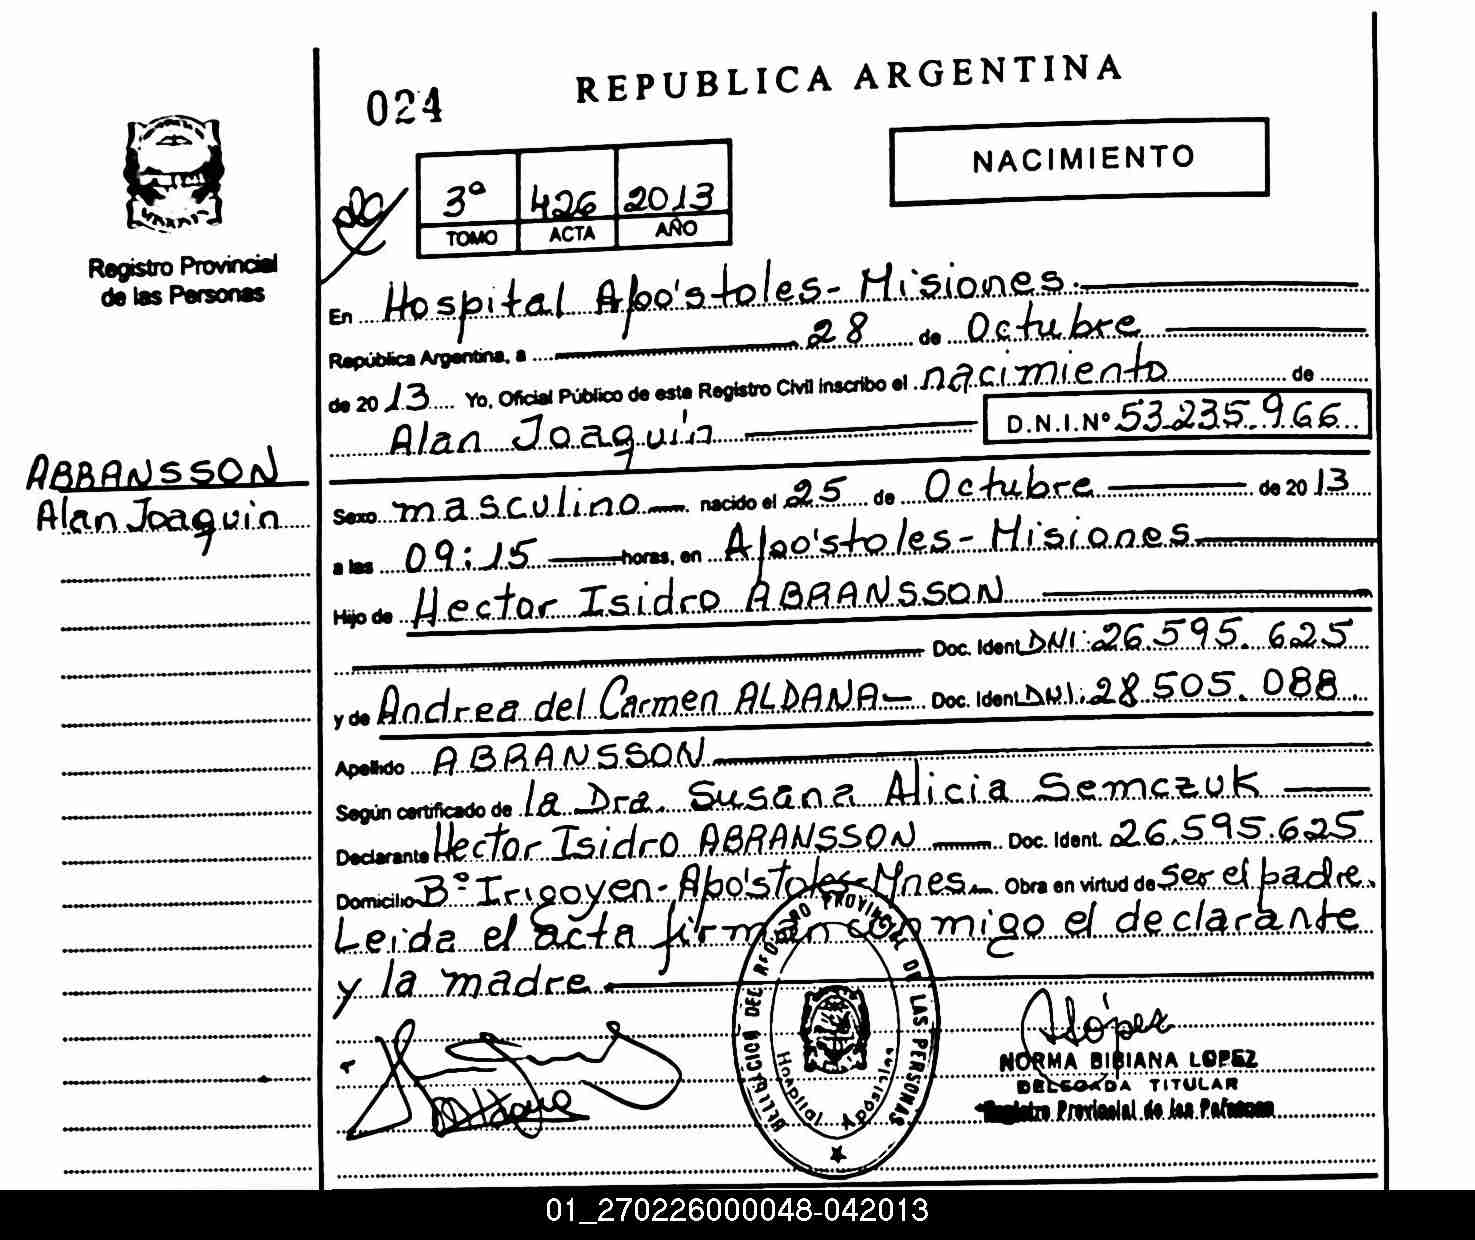 024
REPUBLICA ARGENTINA
NACIMIENTO
3º 426 2013
TOMO ACTA AÑO
Registro Provincial
de las Personas
En Hospital Apóstoles - Misiones.
República Argentina, a 28 de Octubre
de 2013 Yo, Oficial Público de este Registro Civil inscribo el nacimiento de
Alan Joaquín D.N.I.Nº 53.235.966
ABRANSSON
Alan Joaquin
Sexo masculino nacido el 25 de Octubre de 2013
a las 09:15 horas, en Apóstoles - Misiones
Hijo de Hector Isidro ABRANSSON
Doc. Ident. DNI: 26.595.625
y de Andrea del Carmen ALDANA - Doc. Ident. DNI: 28.505.088.
Apellido ABRANSSON
Según certificado de la Dra. Susana Alicia Semczuk
Declarante Hector Isidro ABRANSSON Doc. Ident. 26.595.625
Domicilio Bº Irigoyen - Apóstoles - Mnes. Obra en virtud de ser el padre.
Leida el acta firman conmigo el declarante
y la madre
DEL REGISTRO PROVINCIAL DE LAS PERSONAS
Hospital Apóstoles
López
NORMA BIBIANA LOPEZ
DELEGADA TITULAR
Registro Provincial de las Personas
01_270226000048-042013